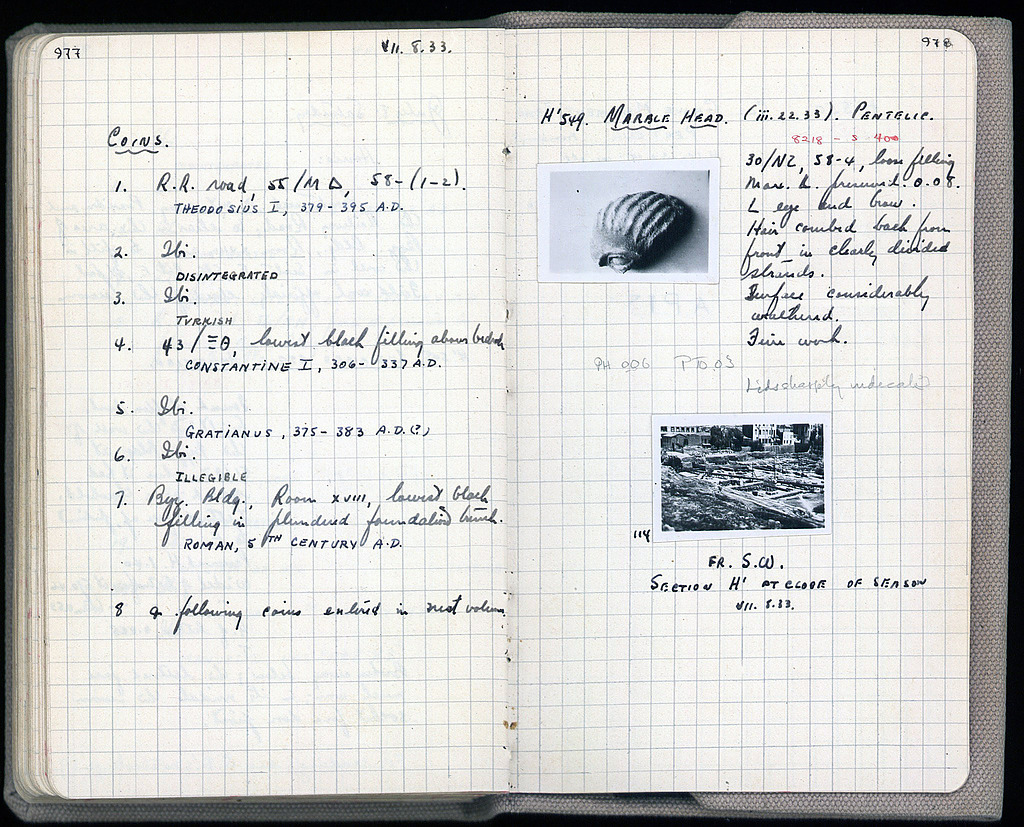 977
VII. 8.33.
COINS.
1. R.R. road, 55/ΜΔ, 58-(1-2).
THEODOSIUS I, 379-395 A.D.
2. Ibi.
DISINTEGRATED
3. Ibi.
TURKISH
4. 43/ΞΘ, lowest black filling above bedrock
CONSTANTINE I, 306-337 A.D.
5. Ibi.
GRATIANUS, 375-383 A.D.(?)
6. Ibi.
ILLEGIBLE
7. Byz. Bldg., Room XVIII, lowest black
filling in plundered foundation trench.
ROMAN, 5TH CENTURY A.D.
8 & following coins entered in next volume
978
H'549. MARBLE HEAD. (iii.22.33). PENTELIC.
8218 - S 400
30/ΝΖ, 58-4, loose filling
Max. h. preserved. 0.08.
L eye and brow.
Hair combed back from
front in clearly divided
strands.
Surface considerably
weathered.
Fine work.
PH 0.06 PT 0.05
Lids sharply indicated
114
FR. S.W.
SECTION H' AT CLOSE OF SEASON
VII. 8.33.